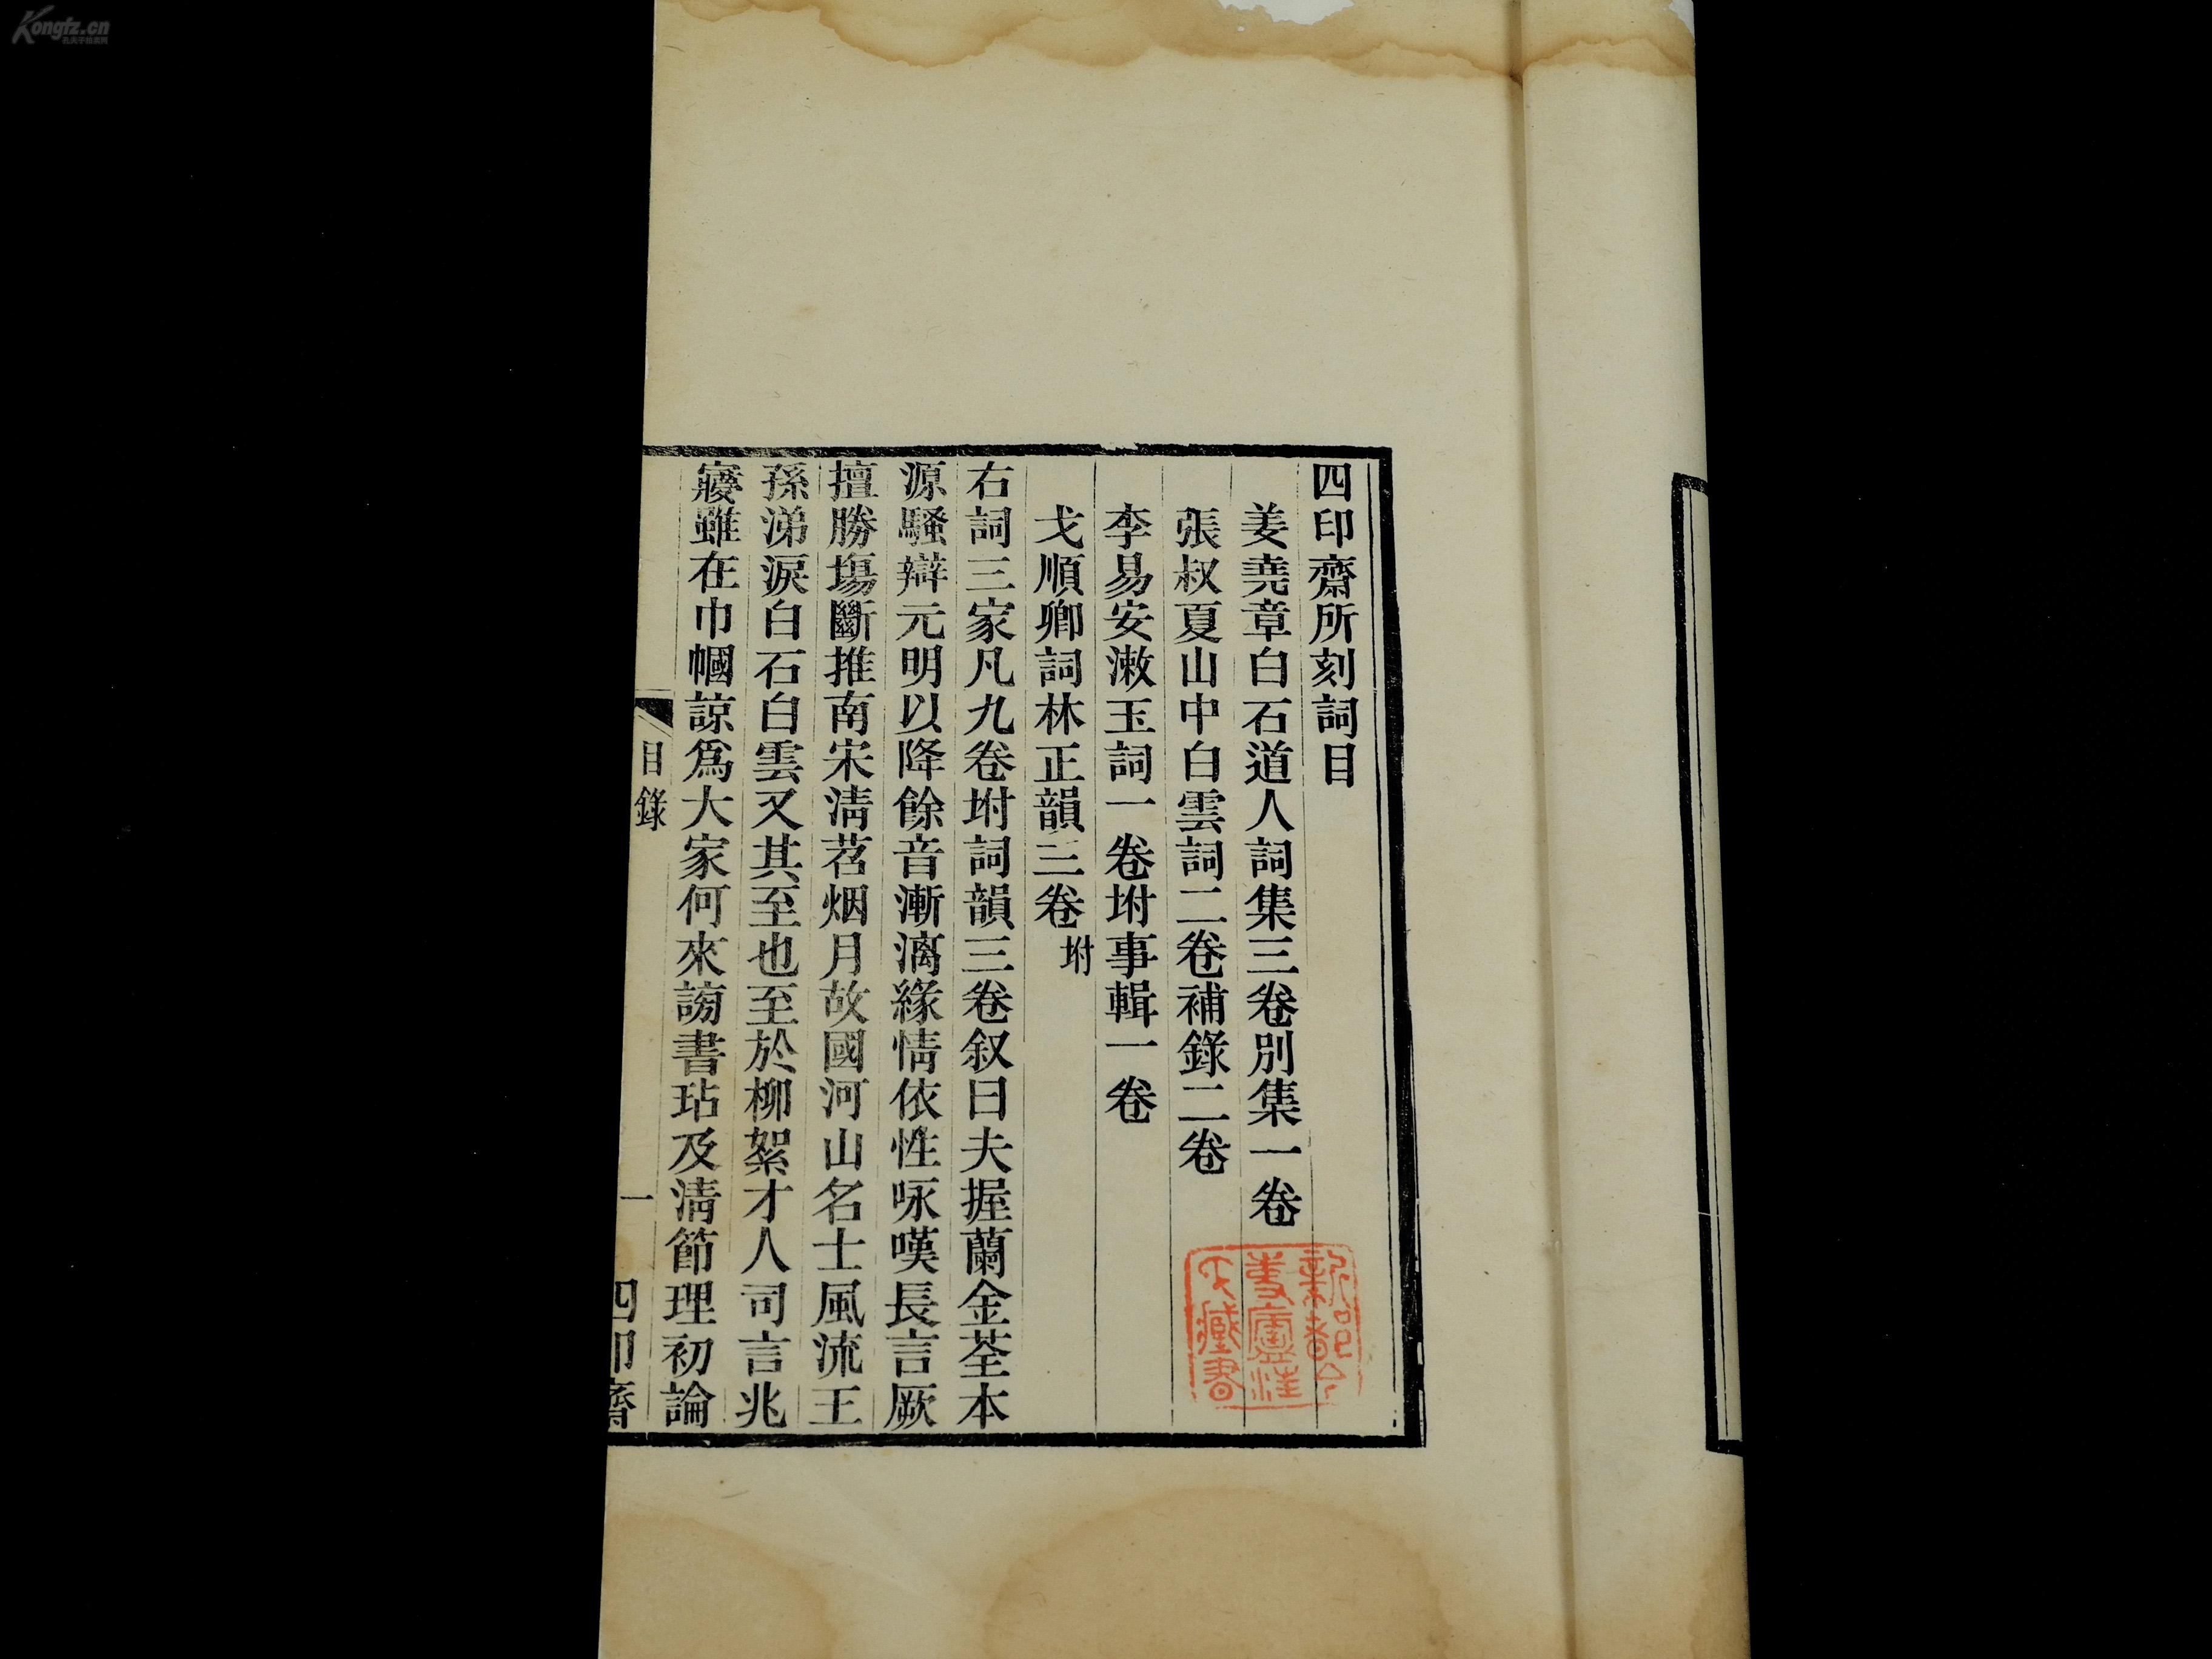 四印齋所刻詞目
姜堯章白石道人詞集三卷別集一卷
張叔夏山中白雲詞二卷補錄二卷
李易安漱玉詞一卷坿事輯一卷
戈順卿詞林正韻三卷坿
右詞三家凡九卷坿詞韻三卷叙曰夫握蘭金荃本
源騷辯元明以降餘音漸漓緣情依性咏嘆長言厥
擅勝塲斷推南宋淸茗烟月故國河山名士風流王
孫涕淚白石白雲又其至也至於柳絮才人司言兆
寱雖在巾幗諒爲大家何來謗書玷及淸節理初論
目錄
一
四印齋
Kongfz.cn
孔夫子舊書網